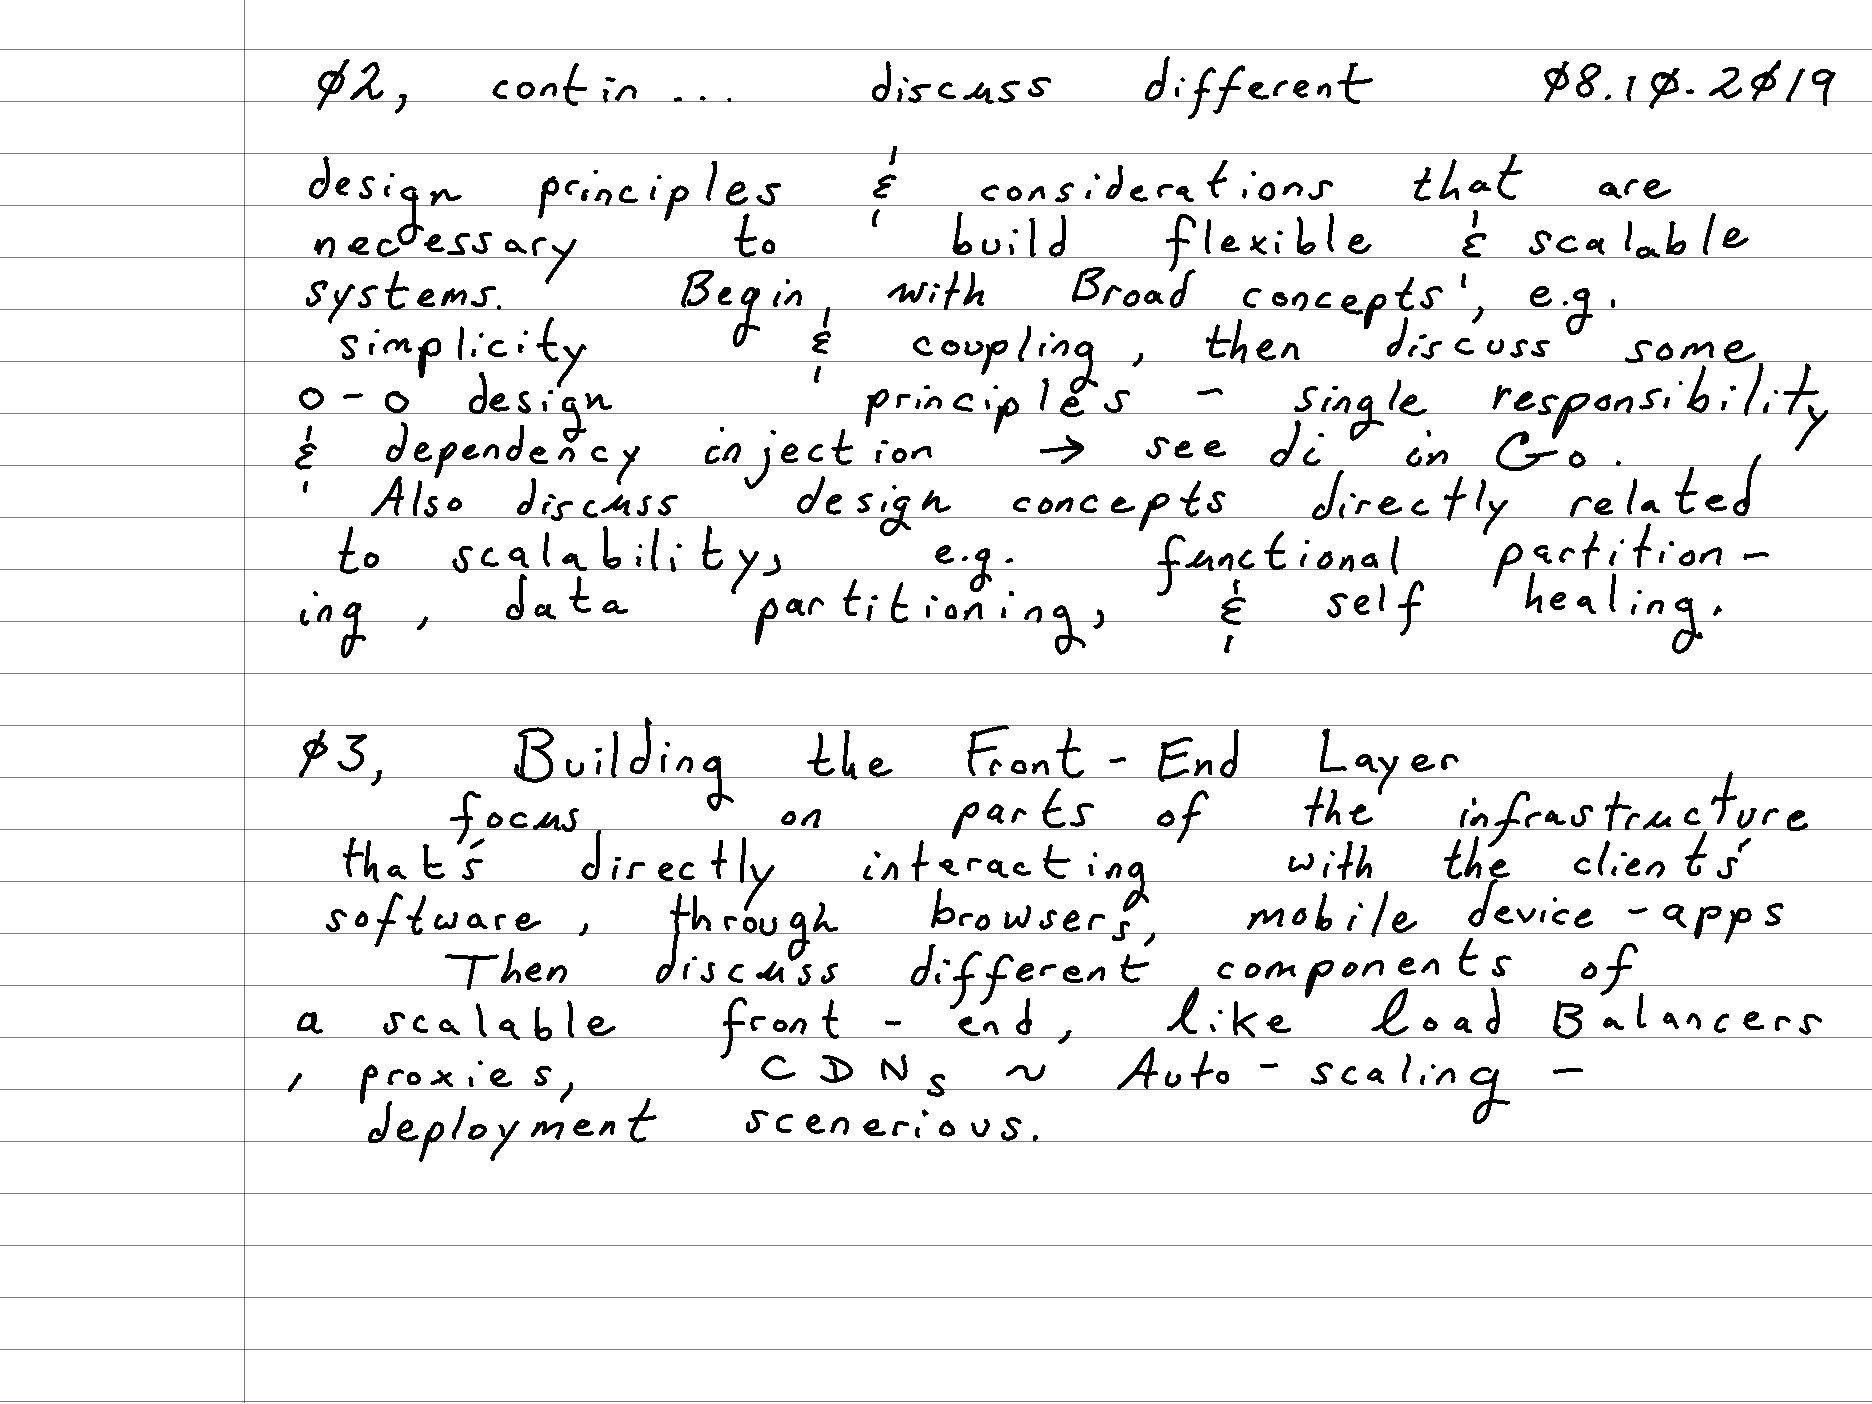 Ø2, contin... discuss different Ø8.1Ø.2Ø19
design principles & considerations that are
necessary to build flexible & scalable
systems. Begin with Broad concepts', e.g.
simplicity & coupling, then discuss some
O-O design principles - single responsibility
& dependency injection → see di in Go.
Also discuss design concepts directly related
to scalability, e.g. functional partition-
ing, data partitioning, & self healing.
Ø3, Building the Front-End Layer
focus on parts of the infrastructure
that's directly interacting with the clients'
software, through browsers, mobile device-apps
Then discuss different components of
a scalable front-end, like load Balancers
, proxies, CDNs ~ Auto-scaling -
deployment scenerious.